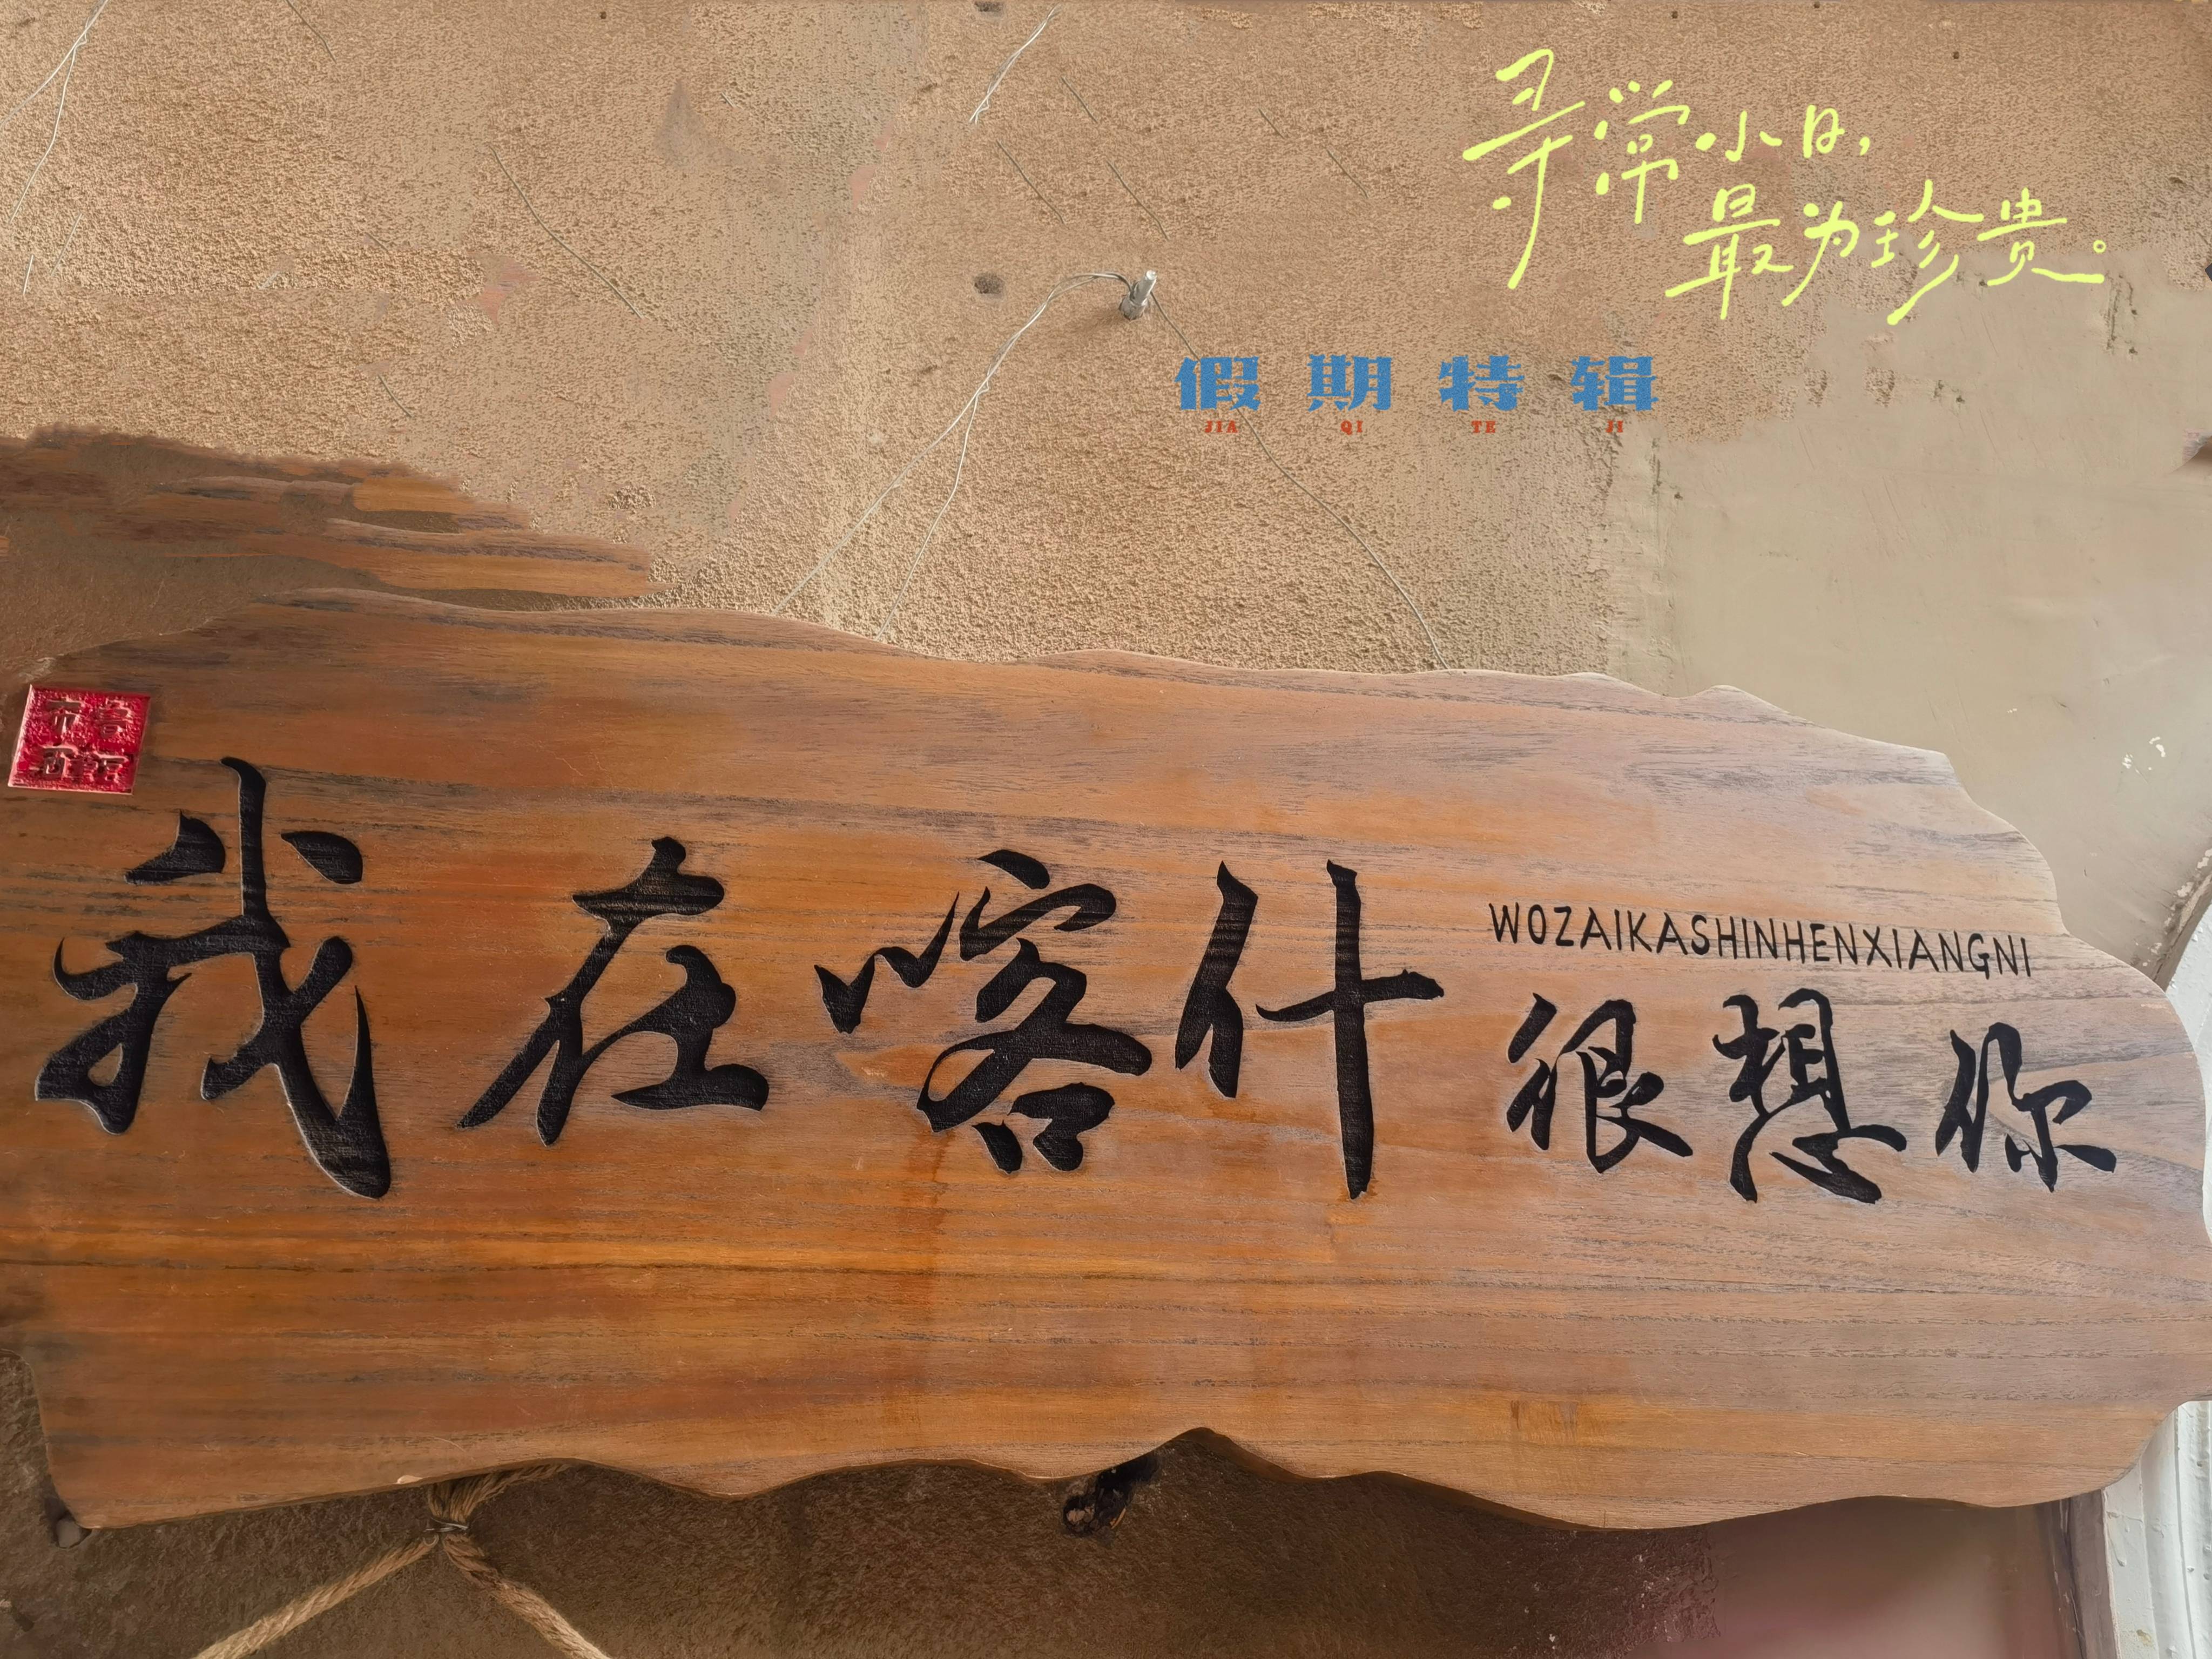 寻常小日，
最为珍贵。
假期特辑
JIA QI TE JI
我在喀什
WOZAIKASHINHENXIANGNI
很想你